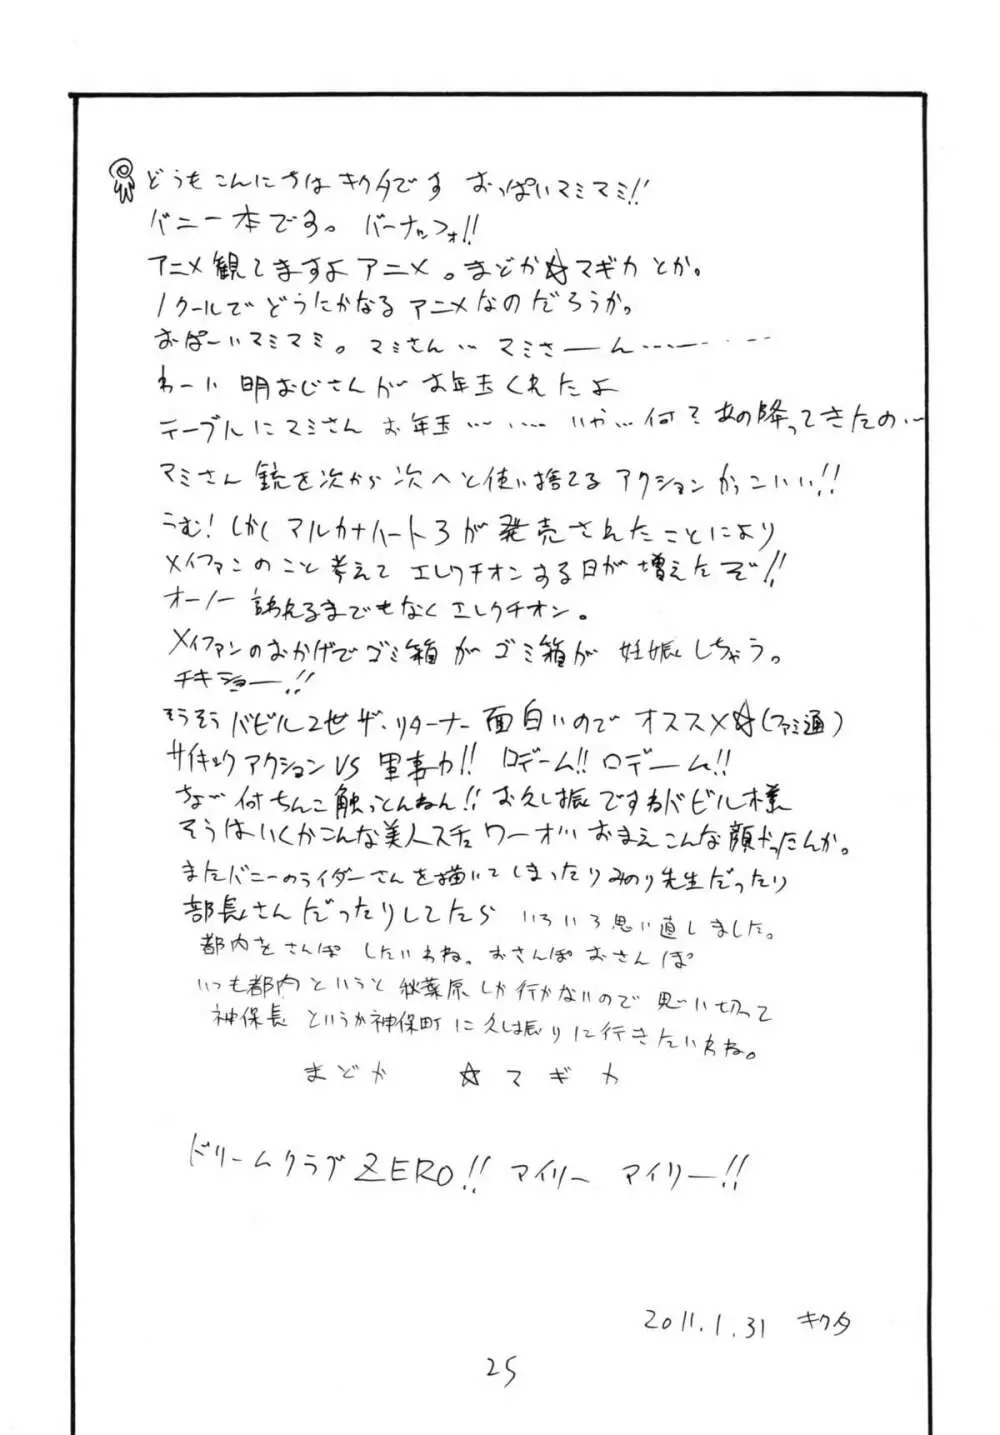 どうもこんにちはキクタです おっぱいマミマミ!!
バニー本です。バーナッフォ!!
アニメ観てますよアニメ。まどか☆マギカとか。
1クールでどうにかなるアニメなのだろうか。
おぱーいマミマミ。マミさん… マミさーん…
わーい 明おじさんが お年玉くれたよ
テーブルにマミさん お年玉…… いや…何て あの降ってきたの…
マミさん 銃を次から次へと使い捨てる アクションかっこいい!!
うむ! しかし マルカナハート3が発売されたことにより
メイファンのこと考えて エレクチオンする日が増えたぞ!!
オーノー 訴えるまでもなくエレクチオン。
メイファンのおかげでゴミ箱が ゴミ箱が 妊娠しちゃう。
チキショー!!
そうそうバビル2世ザ・リターナー 面白いので オススメ☆(ファミ通)
サイキックアクションVS 軍事力!! ロデーム!! ロデーム!!
ちょ 何ちんこ触っとんねん!! お久し振りですねバビル様
そうはいくかこんな美人スチ ワーオ!! おまえこんな顔やったんか。
またバニーのライダーさんを描いてしまったりみのり先生だったり
部長さんだったりしてたら いろいろ思い直しました。
都内をさんぽ したいわね。おさんぽおさんぽ
いつも都内というと 秋葉原しか行かないので 思い切って
神保長 というか神保町に久し振りに行きたいわね。
まどか ☆マギカ
ドリームクラブZERO!! アイリー アイリー!!
2011.1.31 キクタ
25